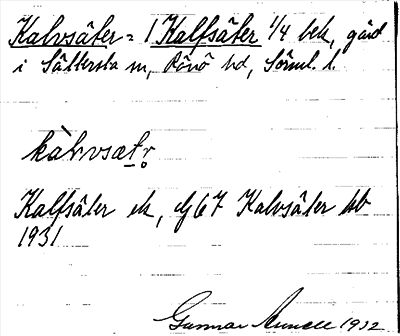 Kalvsäter = 1 Kalfsäter 1/4 bek, gård
i Sättersta sn, Rönö hd, Sörml. l.
kàlvsætr
Kalfsäter ek, Gj 67 Kalvsäter kb
1931
Gunnar 1932